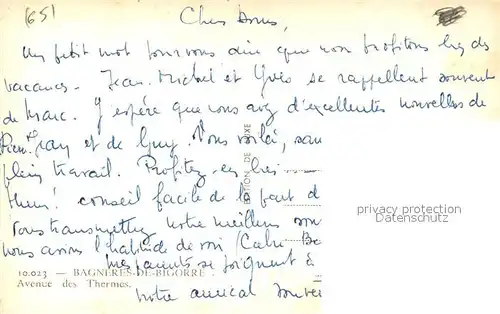 (651
Chers Amis,
Un petit mot pour vous dire que nous profitons bien des
vacances. Jean-Michel et Yves se rappellent souvent
de Marc. J'espère que vous avez d'excellentes nouvelles de
Jean et de Guy. Vous voilà, sans
plein travail. Profitez-en bien
conseil facile de la part d
Vous transmettez notre meilleur son
nous avions l'habitude de voir (Calm Be
mes parents se soignent à
notre amical souve
10.023 — BAGNÈRES-DE-BIGORRE
Avenue des Thermes.
ÉDITION DE LUXE
privacy protection